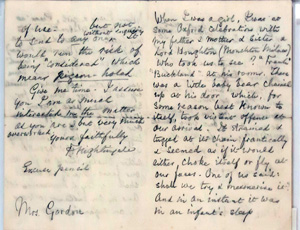 of use: but not
without inquiry
to send to any man. It
would run the risk of
being "overdosed" Which
means poison-
Give me time. I assure
you I am as much
interested in the matter
as you are & the very much
overworked
Yours faithfully
F Nightingale
Excuse pencil
Mrs. Gordon
When I was a girl, I was at
some Oxford Celebration with
my father & mother & sister &
Lord Houghton (Monckton Milnes)
Who took us to see "Frank
Buckland" at his rooms. There
was a little baby bear chained
up at his door which, for
some reason best known to
itself, took violent offence at
our arrival. It strained &
tugged at its chain frantically
& seemed as if it would
either choke itself or fly at
our faces. One of us said:
shall we try & mesmerise it?
And in an instant it was
in an infant's sleep